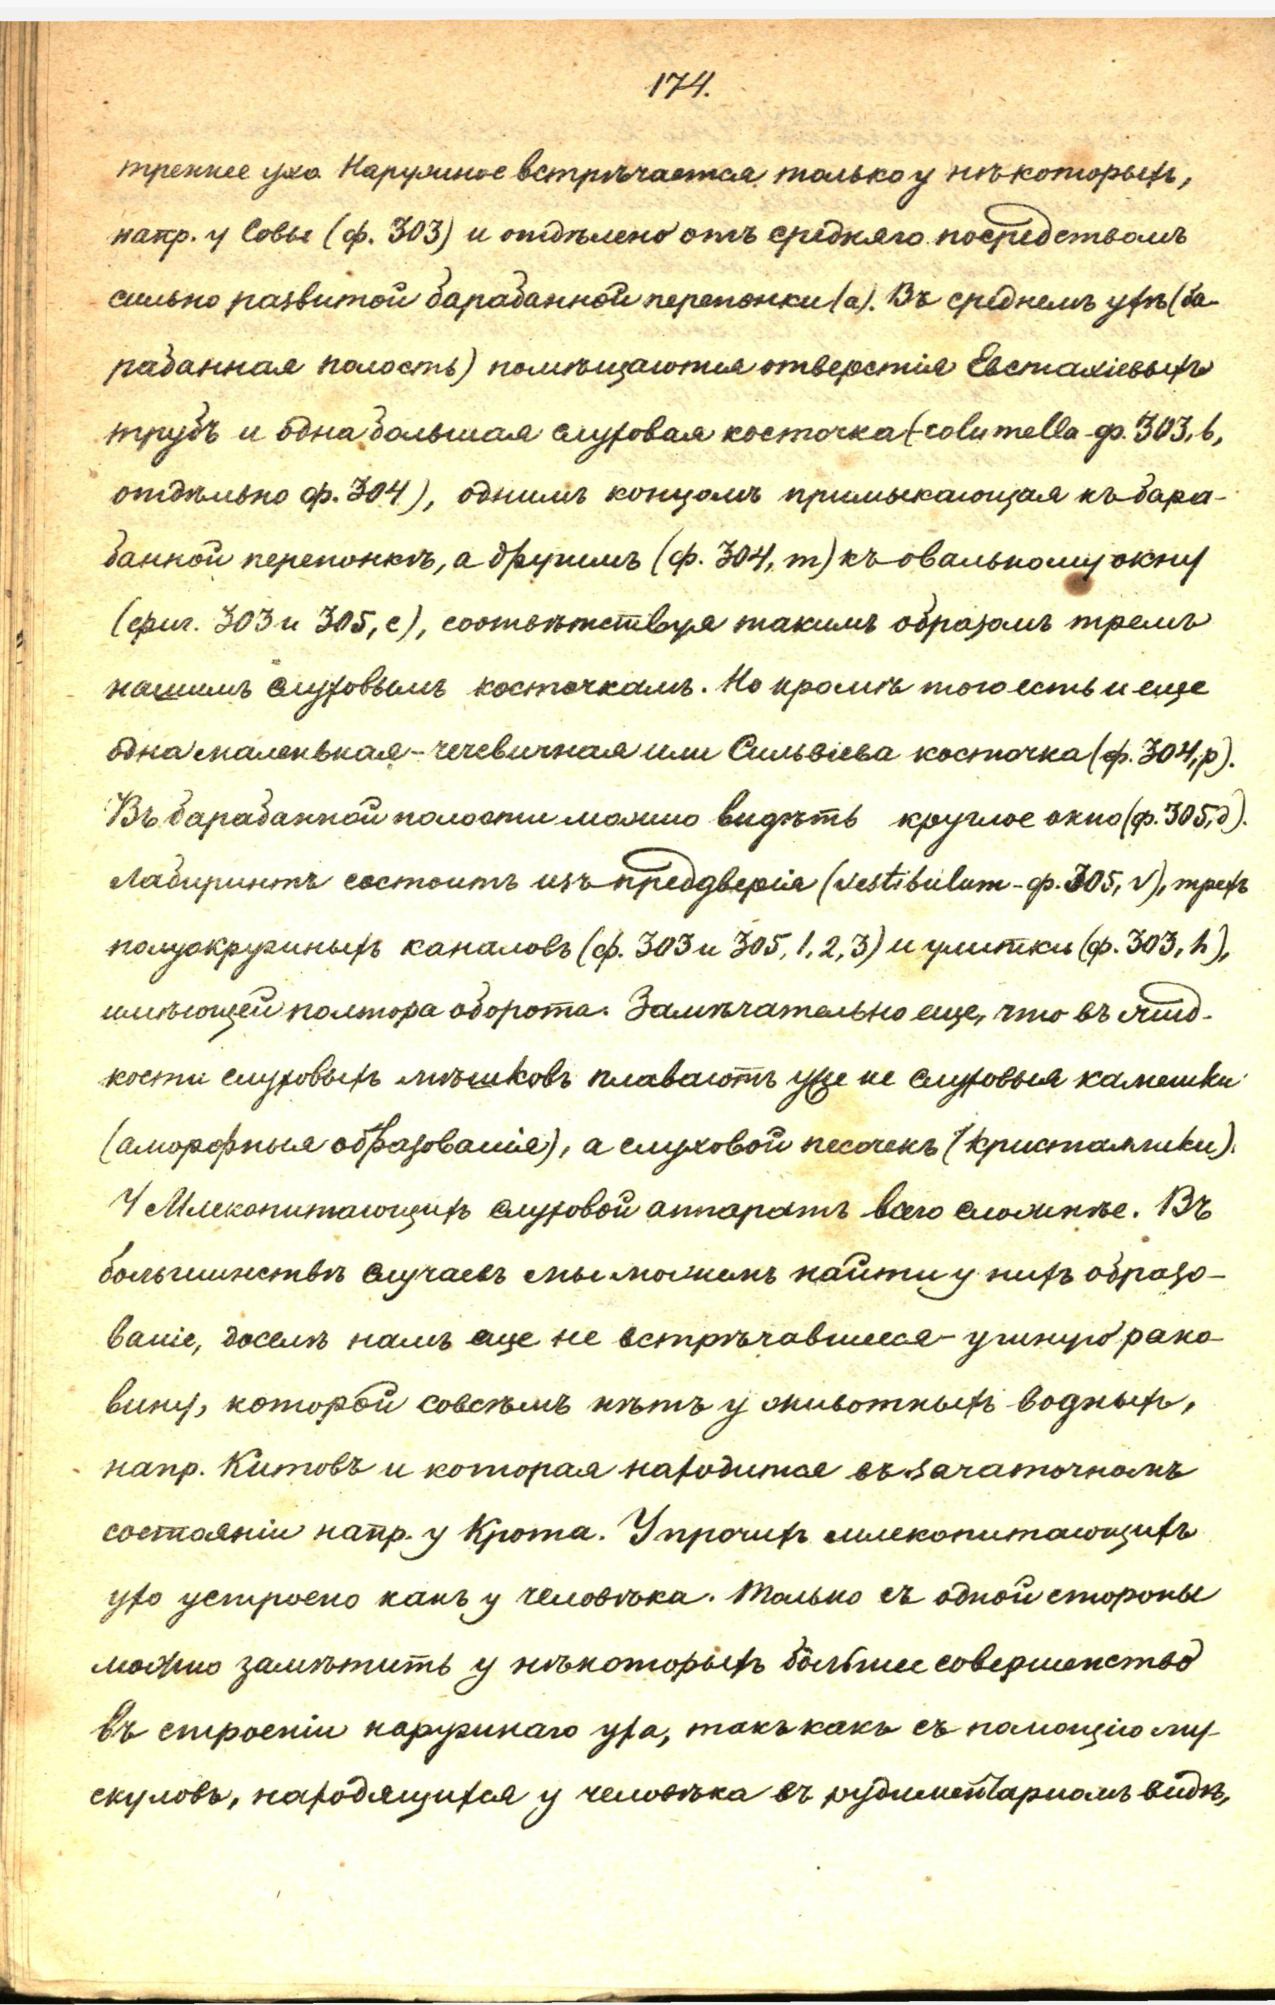 174.
треннее ухо. Наружное встрѣчается только у нѣкоторыхъ,
напр. у Совы (ф. 303) и отдѣлено отъ средняго посредствомъ
сильно развитой барабанной перепонки (а). Въ среднемъ ухѣ (ба-
рабанная полость) помѣщаются отверстія Евстахіевыхъ
трубъ и одна большая слуховая косточка (columella - ф. 303, b,
отдѣльно ф. 304), однимъ концомъ примыкающая къ бара-
банной перепонкѣ, а другимъ (ф. 304, m) къ овальному окну
(фиг. 303 и 305, c), соотвѣтствуя такимъ образомъ тремъ
нашимъ слуховымъ косточкамъ. Но кромѣ того есть и еще
одна маленькая - чечевичная или Сильвіева косточка (ф. 304, p).
Въ барабанной полости можно видѣть круглое окно (ф. 305, d).
Лабиринтъ состоитъ изъ преддверія (vestibulum - ф. 305, v), трехъ
полуокружныхъ каналовъ (ф. 303 и 305, 1, 2, 3) и улитки (ф. 303, h),
имѣющей полтора оборота. Замѣчательно еще, что въ жид-
кости слуховыхъ мѣшковъ плаваютъ уже не слуховыя камешки
(аморфныя образованія), а слуховой песочекъ (кристаллики).
У Млекопитающихъ слуховой аппаратъ всего сложнѣе. Въ
большинствѣ случаевъ мы можемъ найти у нихъ образо-
ваніе, доселѣ намъ еще не встрѣчавшееся - ушную рако-
вину, которой совсѣмъ нѣтъ у животныхъ водныхъ,
напр. Китовъ и которая находится въ зачаточномъ
состояніи напр. у Крота. У прочихъ млекопитающихъ
ухо устроено какъ у человѣка. Только съ одной стороны
можно замѣтить у нѣкоторыхъ большее совершенство
въ строеніи наружнаго уха, такъ какъ съ помощію му-
скуловъ, находящихся у человѣка въ рудиментарномъ видѣ,